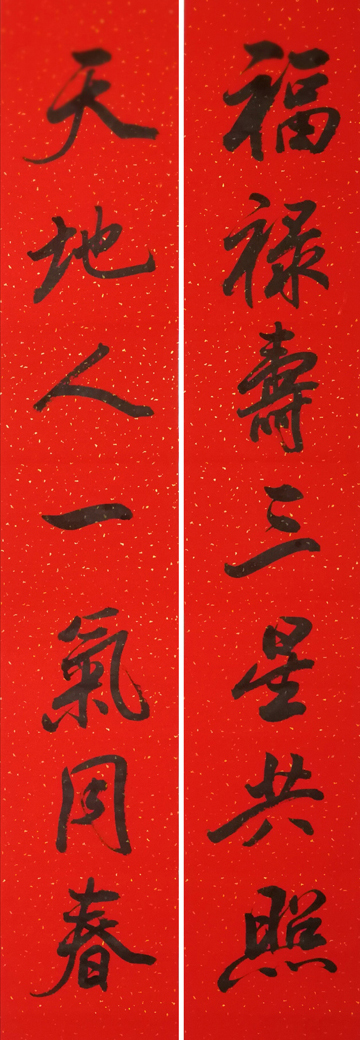 福禄壽三星共照
天地人一氣同春